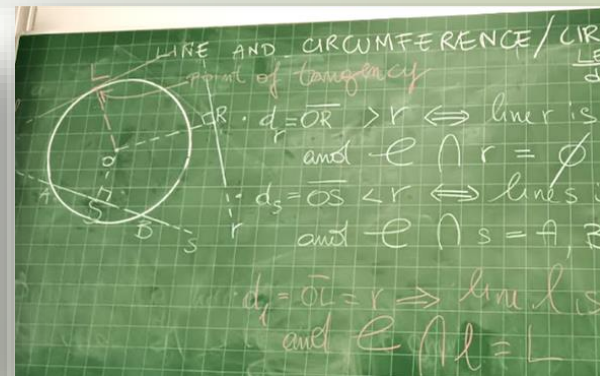 LINE AND CIRCUMFERENCE / CIR
LE
d
L
point of tangency
R
• d_r = \overline{OR} > r ⟺ line r is
and C ∩ r = ∅
O
A
S
B
s
r
• d_s = \overline{OS} < r ⟺ line s i
and C ∩ s = A, B
• d_l = \overline{OL} = r ⟹ line l is
and C ∩ l = L